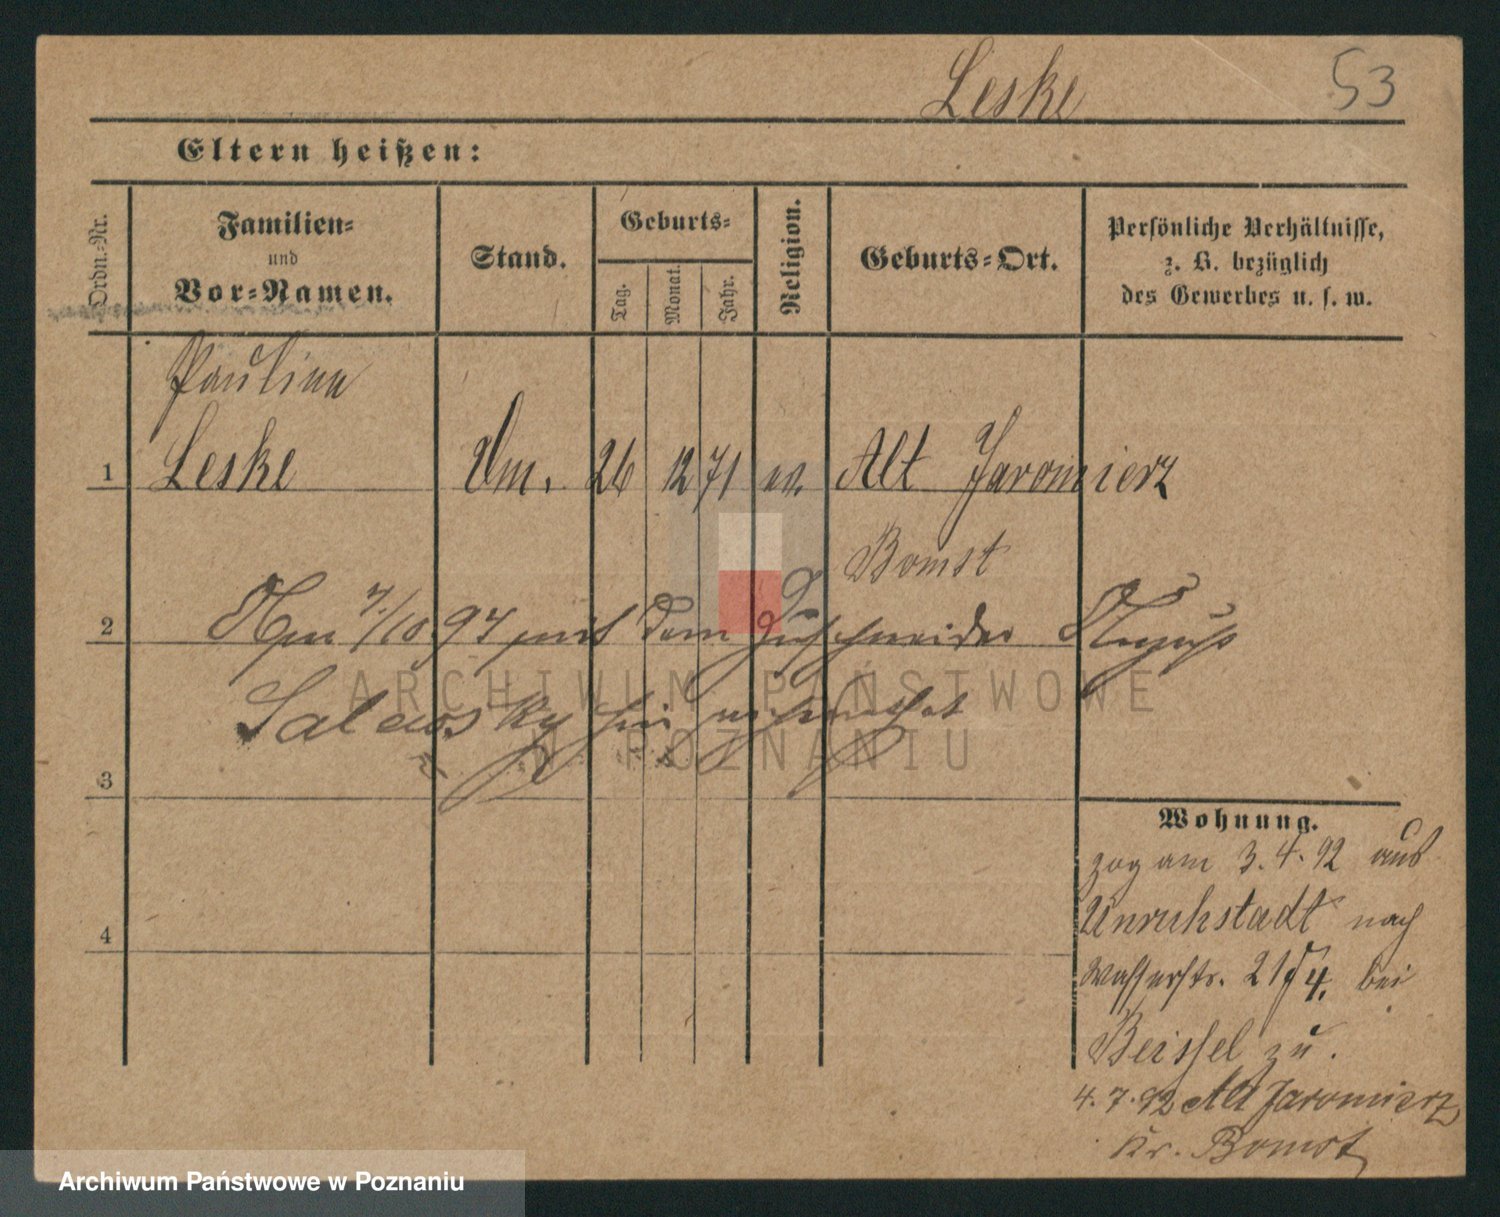 Leske 53
Eltern heißen:
Ordn.-Nr.
Familien-
und
Vor-Namen.
Stand.
Geburts-
Tag.
Monat.
Jahr.
Religion.
Geburts-Ort.
Persönliche Verhältnisse,
z. B. bezüglich
des Gewerbes u. s. w.
Pauline
1 Leske Dm. 26 12 71 ev. Alt Jaromierz
Bomst
2 Am 7/10 97 mit dem Zuschneider August
Salewsky hier verheirathet
3
4
Wohnung.
zog am 3.4.92 aus
Unruhstadt nach
Wasserstr. 21 4. bei
Beissel zu.
4.7.92 Alt Jaromierz
Kr. Bomst
ARCHIWUM PAŃSTWOWE
W POZNANIU
Archiwum Państwowe w Poznaniu